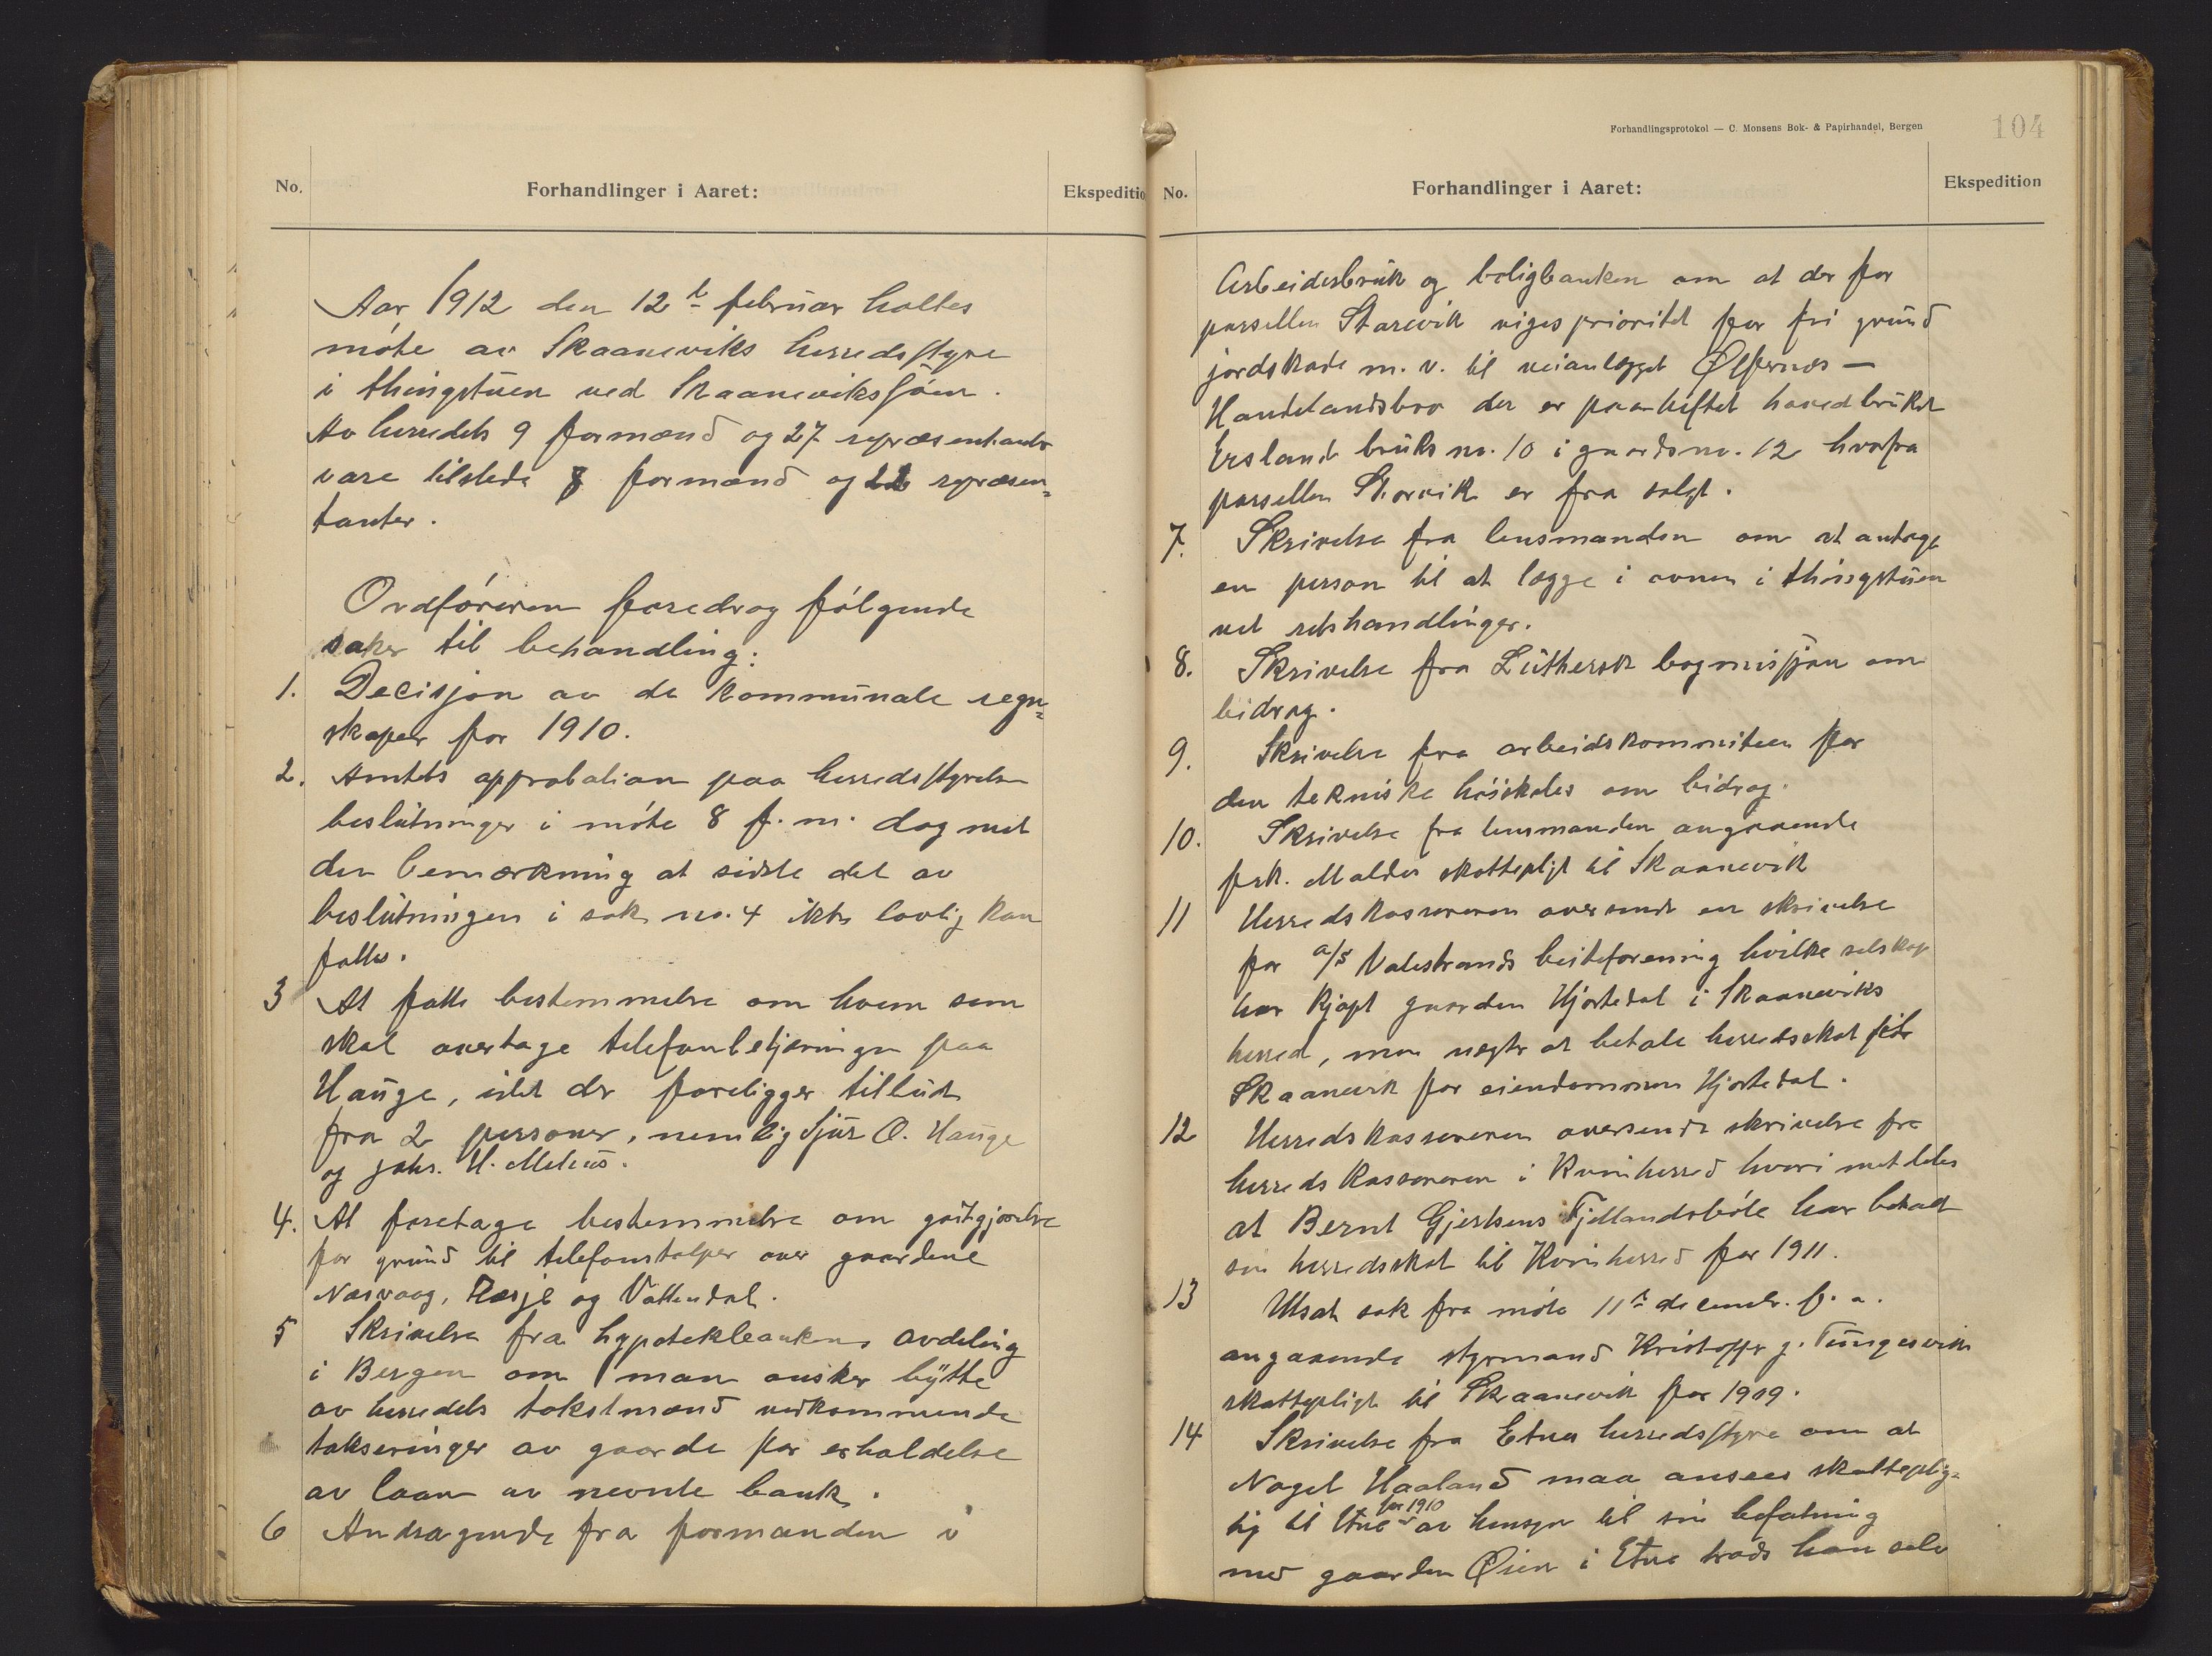 No.
Forhandlinger i Aaret:
Ekspeditio
Aar 1912 den 12te februar holtes
møte av Skaaneviks herredsstyre
i thingstuen ved Skaanevikssjøen.
Av herredets 9 formænd og 27 repræsentanter
vare tilstede 8 formænd og 22 repræsen-
tanter.
Ordføreren foredrog følgende
saker til behandling:
1. Decisjon av de kommunale regn-
skaper for 1910.
2. Amtets approbation paa herredsstyrets
beslutninger i møte 8 f. m. dog med
den bemærkning at sidste del av
beslutningen i sak no. 4 ikke lovlig kan
fattes.
3 At fatte bestemmelse om hvem som
skal overtage telefonbetjeningen paa
Hauge, idet der foreligger tilbud
fra 2 personer, nemlig Sjur O. Hauge
og Johs. H. Milius.
4. At foretage bestemmelse om godtgjørelse
for grund til telefonstolper over gaardene
Næsvaag, Tesje og Vattendal.
5 Skrivelse fra hypotekbankens avdeling
i Bergen om man ønsker bytte
av herredets takstmænd vedkommende
takseringer av gaarde for erholdelse
av laan av nevnte bank.
6 Andragende fra formanden i
Forhandlingsprotokol — C. Monsens Bok- & Papirhandel, Bergen
104
No.
Forhandlinger i Aaret:
Ekspedition
Arbeidesbruk og boligbanken om at der for
parsellen Starevik viges prioritet for fri grund
jordskade m. v. til veianlægget Ølfernes —
Handelandsbro der er paaheftet hovedbruket
Ersland bruks no. 10 i gaards no. 12 hvorfra
parsellen Storvik er fra solgt.
7. Skrivelse fra lensmanden om at antage
en person til at lægge i ovnen i thingstuen
ved retshandlinger.
8. Skrivelse fra Luthersk bogmissjon om
bidrag.
9. Skrivelse fra arbeidskommiteen for
den tekniske høiskoles om bidrag.
10. Skrivelse fra lensmanden angaaende
frk. Maldes skattepligt til Skaanevik
11 Herredskassereren oversendt en skrivelse
for a/s Valestrands beiteforening hvilke selskap
har kjøpt gaarden Hjortedal i Skaaneviks
herred, men negter at betale herredsskat til
Skaanevik for eiendommen Hjortedal.
12 Herredskassereren oversendt skrivelse fra
herredskassereren i Kvinherred hvori meddeles
at Bernt Gjertsens Fjellandsbøle har betalt
sin herredsskat til Kvinherred for 1911.
13 Utsat sak fra møte 11te decembr. f. a.
angaaende styrmand Kristoffer J. Tungesvik
skattepligt til Skaanevik for 1909.
14 Skrivelse fra Etne herredsstyre om at
Nagel Haaland maa ansees skattepligt-
tig til Etne for 1910 av hensyn til sin befatning
med gaarden Øien i Etne trods han selv